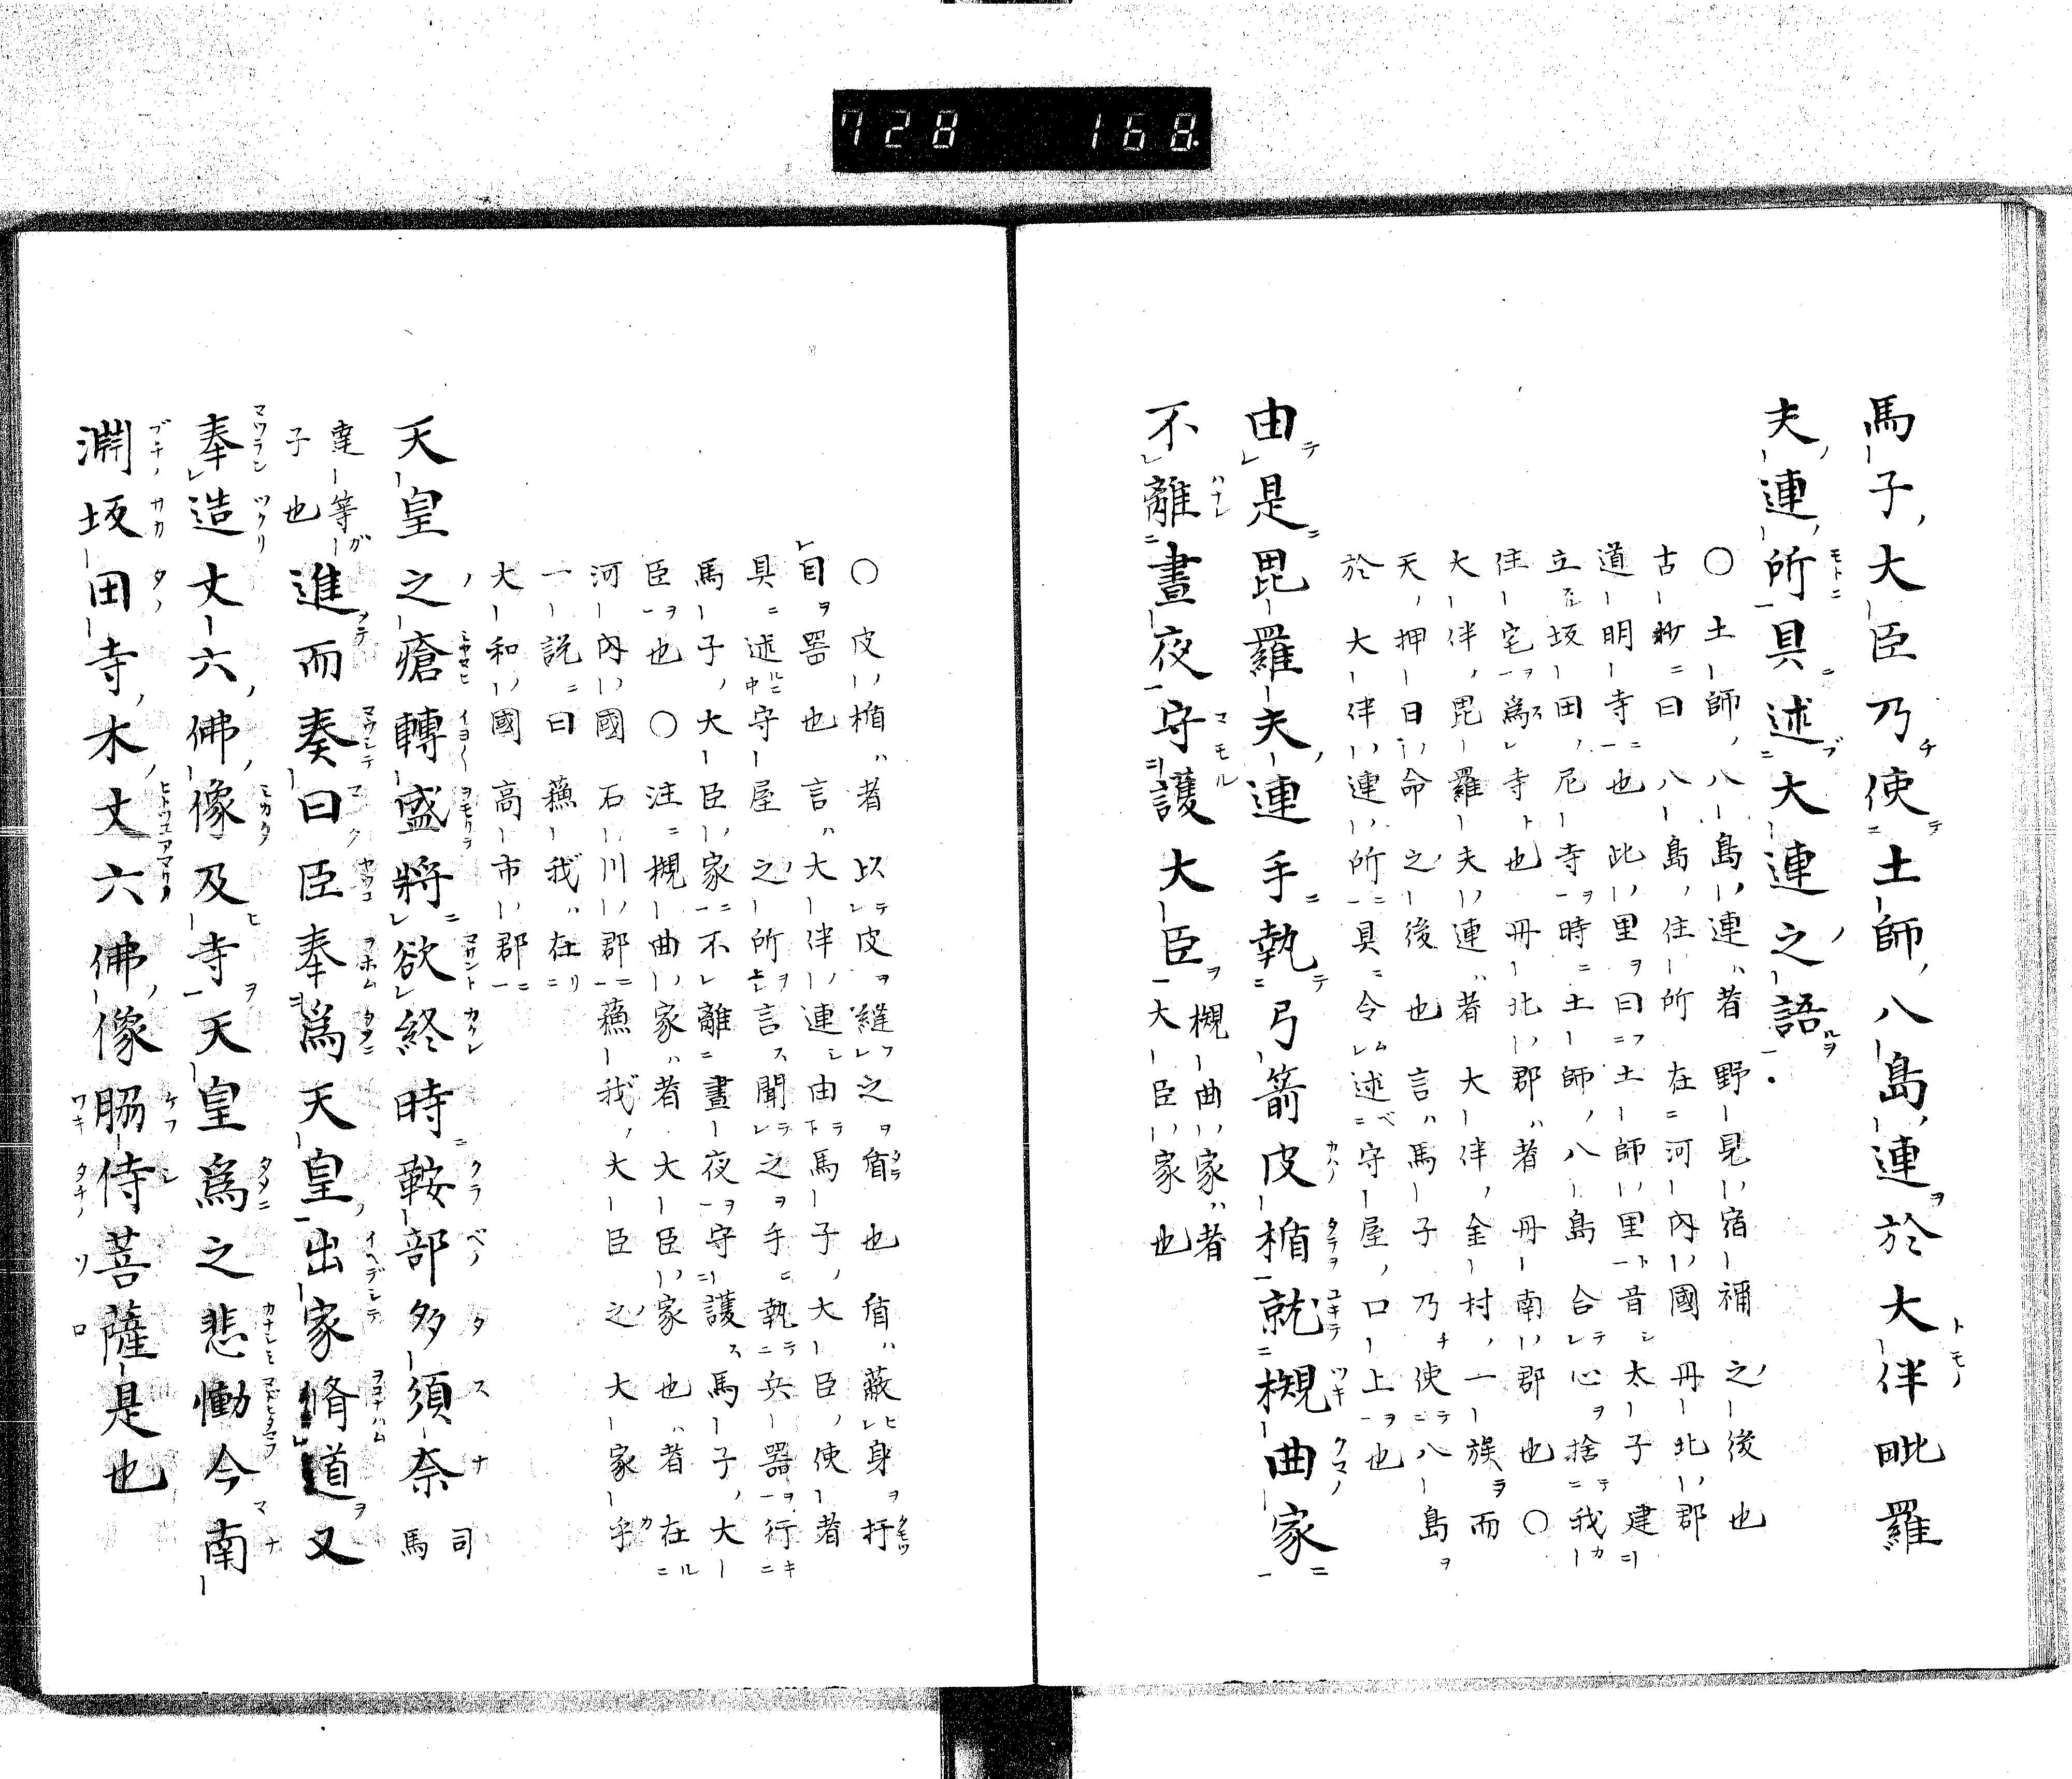 728 168
馬子大臣乃使土師八島連於大伴毗羅
夫連所具述大連之語
〇土師八島連者野見宿禰之後也
古䤬曰八島住所在河內國丹北郡
道明寺也此里曰土師里音太子建
立坂田尼寺時土師八島合心捨我
住宅為寺也丹北郡者丹南郡也〇
大伴毘羅夫連者大伴金村一族而
天押日命之後也言馬子乃使八島
於大伴連所具令述守屋口上也
由是毘羅夫連手執弓箭皮楯就槻曲家
不離晝夜守護大臣槻曲家者
大臣家也
〇皮楯者以皮縫之盾也盾蔽身扞
目器也言大伴連由馬子大臣使者
具述守屋之所言聞之手執兵器行
馬子大臣家不離晝夜守護馬子大
臣也〇注槻曲家者大臣家也者在
河內國石川郡蘓我大臣之大家乎
一說曰蘓我在
大和國高市郡
天皇之瘡轉盛將欲終時鞍部多須奈司馬
達等子也進而奏曰臣奉為天皇出家脩道又
奉造丈六佛像及寺天皇為之悲慟今南
淵坂田寺木丈六佛像脇侍菩薩是也